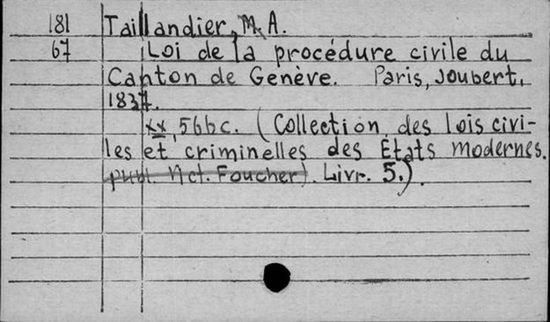 181 Taillandier, M. A.
67 Loi de la procédure civile du
Canton de Genève. Paris, Joubert,
1837.
xx, 566c. (Collection des lois civi-
les et criminelles des États modernes.
publ. Foucher). Livr. 5.).